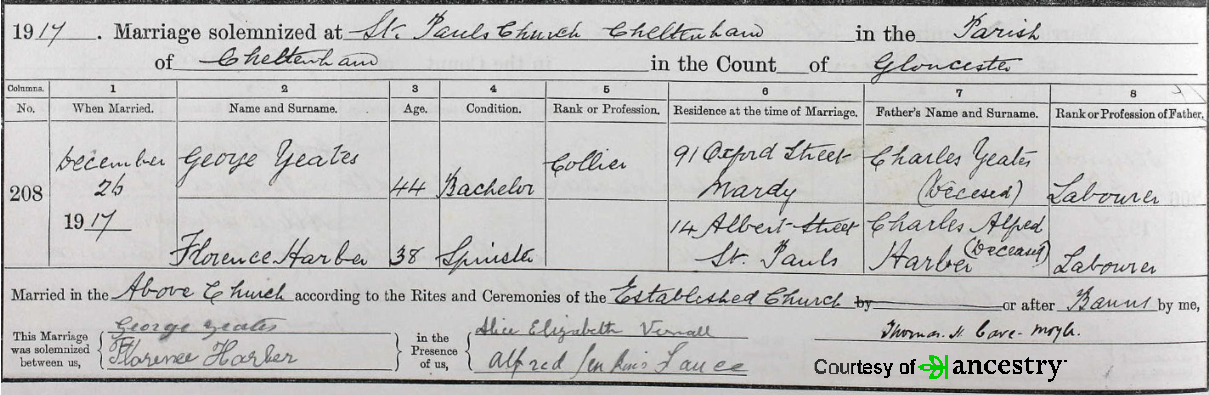 1917. Marriage solemnized at St. Pauls Church Cheltenham in the Parish
of Cheltenham in the Count of Gloucester
Columns. 1 2 3 4 5 6 7 8
No. When Married. Name and Surname. Age. Condition. Rank or Profession. Residence at the time of Marriage. Father's Name and Surname. Rank or Profession of Father.
208 December 26 1917 George Yeates 44 Bachelor Collier 91 Oxford Street Mardy Charles Yeates (Decesed) Labourer
Florence Harber 38 Spinster 14 Albert Street St. Pauls Charles Alfred Harber (Deceased) Labourer
Married in the Above Church according to the Rites and Ceremonies of the Established Church by or after Banns by me,
This Marriage was solemnized between us, George Yeates Florence Harber in the Presence of us, Alice Elizabeth Alfred Jenkins Thomas H. Cave-Moyle.
Courtesy of ancestry